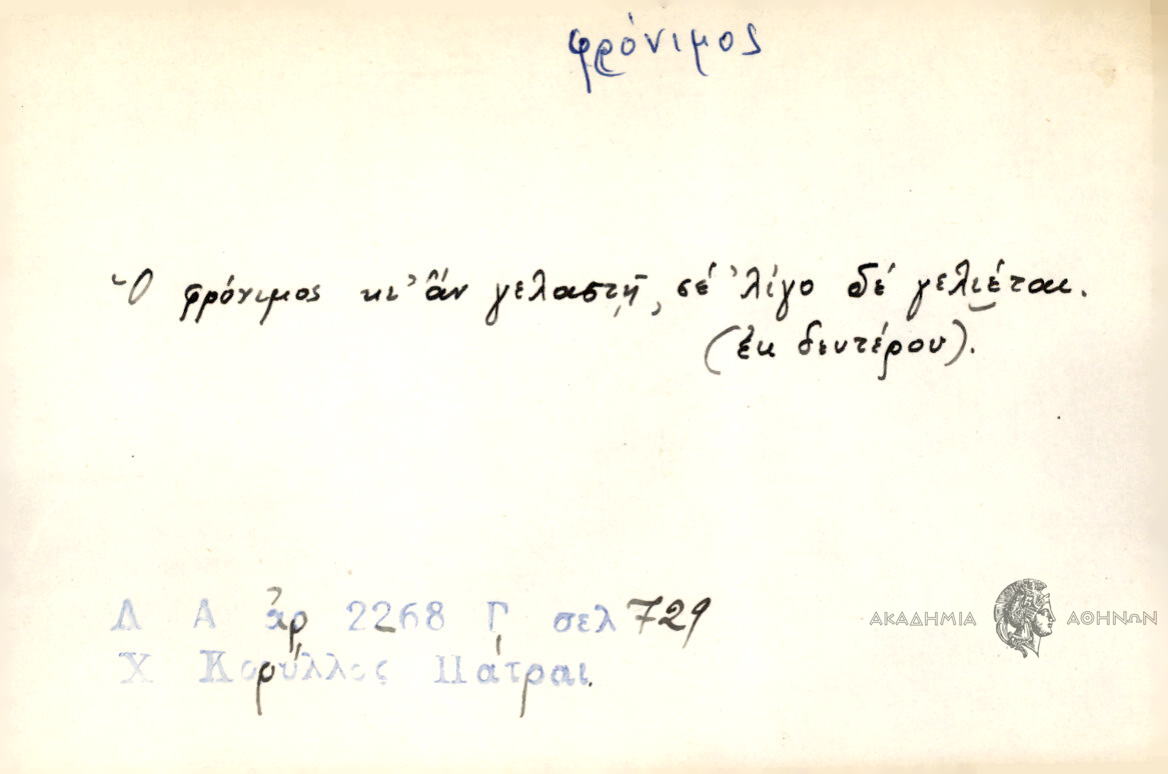 φρόνιμος
Ὁ φρόνιμος κι' ἂν γελαστῇ, σέ 'λίγο δέ γελιέται.
(ἐκ δευτέρου).
Λ Α ἀρ 2268 Γ σελ 729
Χ Κορύλλος Πάτραι.
ΑΚΑΔΗΜΙΑ ΑΘΗΝΩΝ